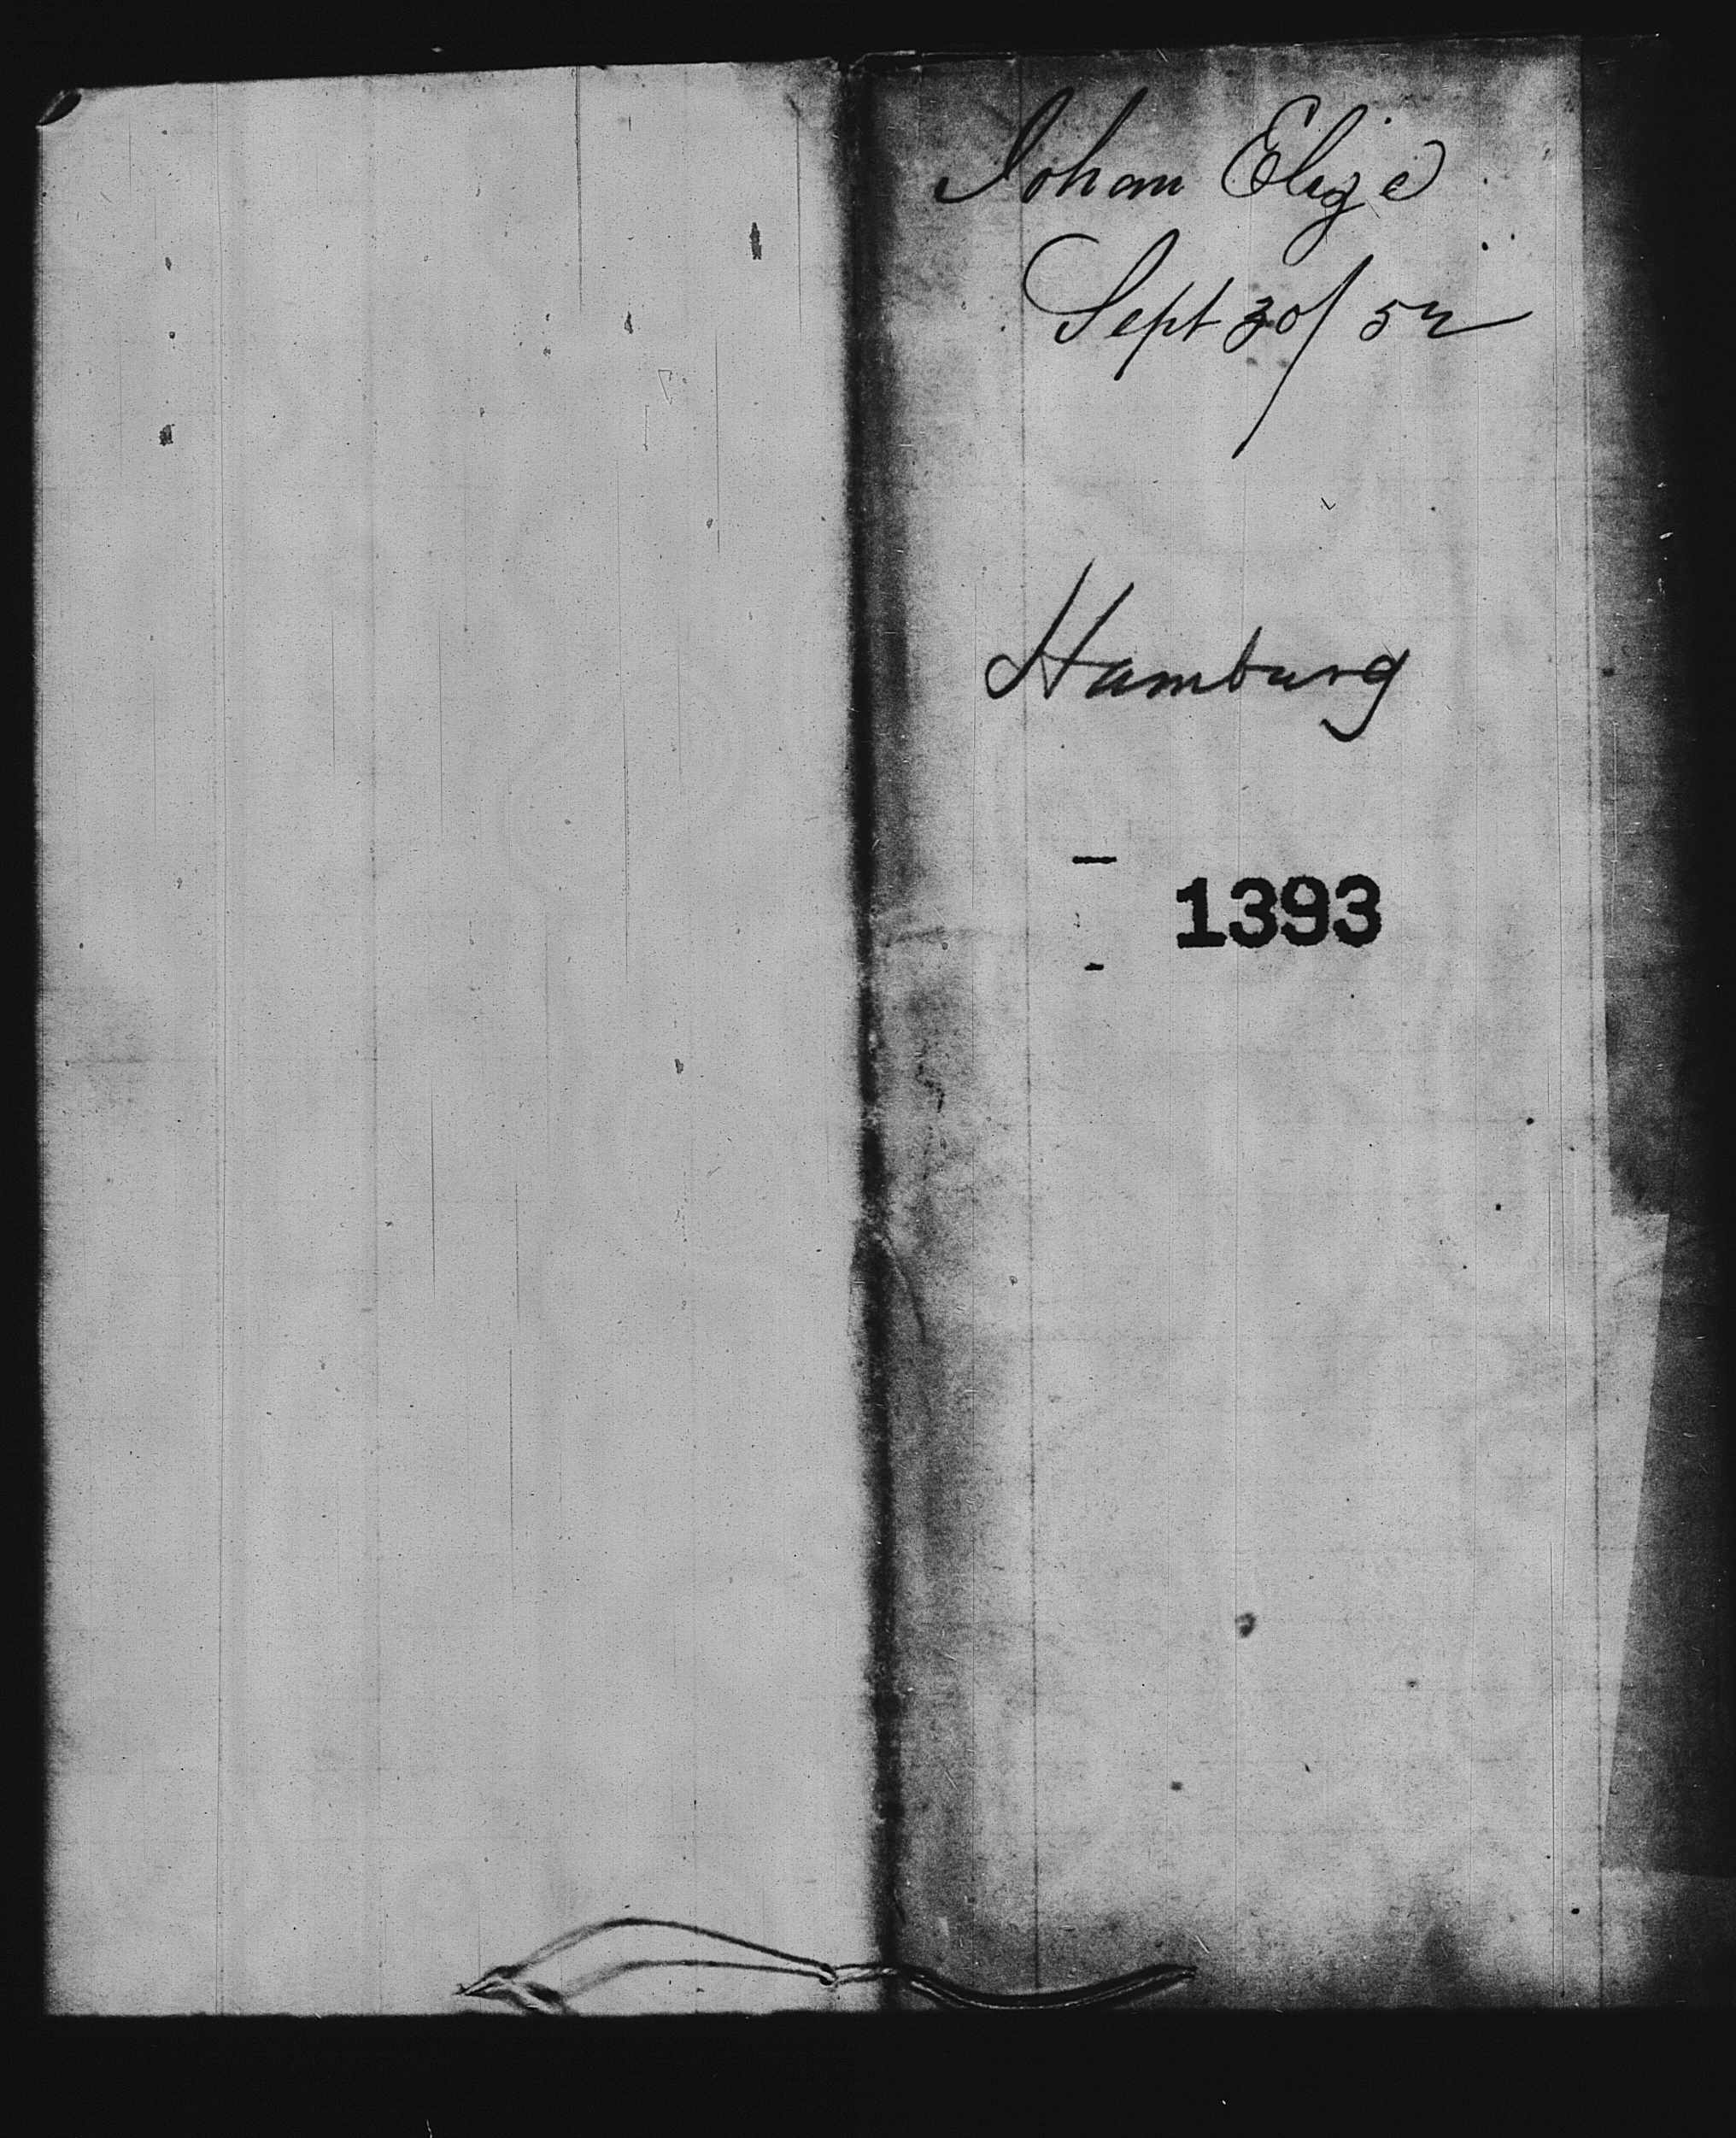 Johan Elize
Sept 30/52
Hamburg
1393